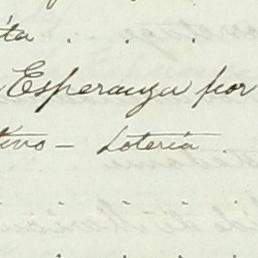 ita . . .
Esperanza por
tivo - Lotería .